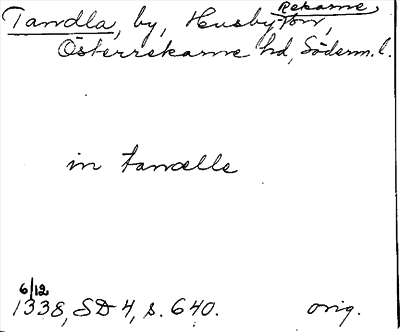 Tandla, by, Husby-Rekarne sn,
Österrekarne hd, Söderm. l.
in tandle
6/12
1338, SD 4, s. 640. orig.